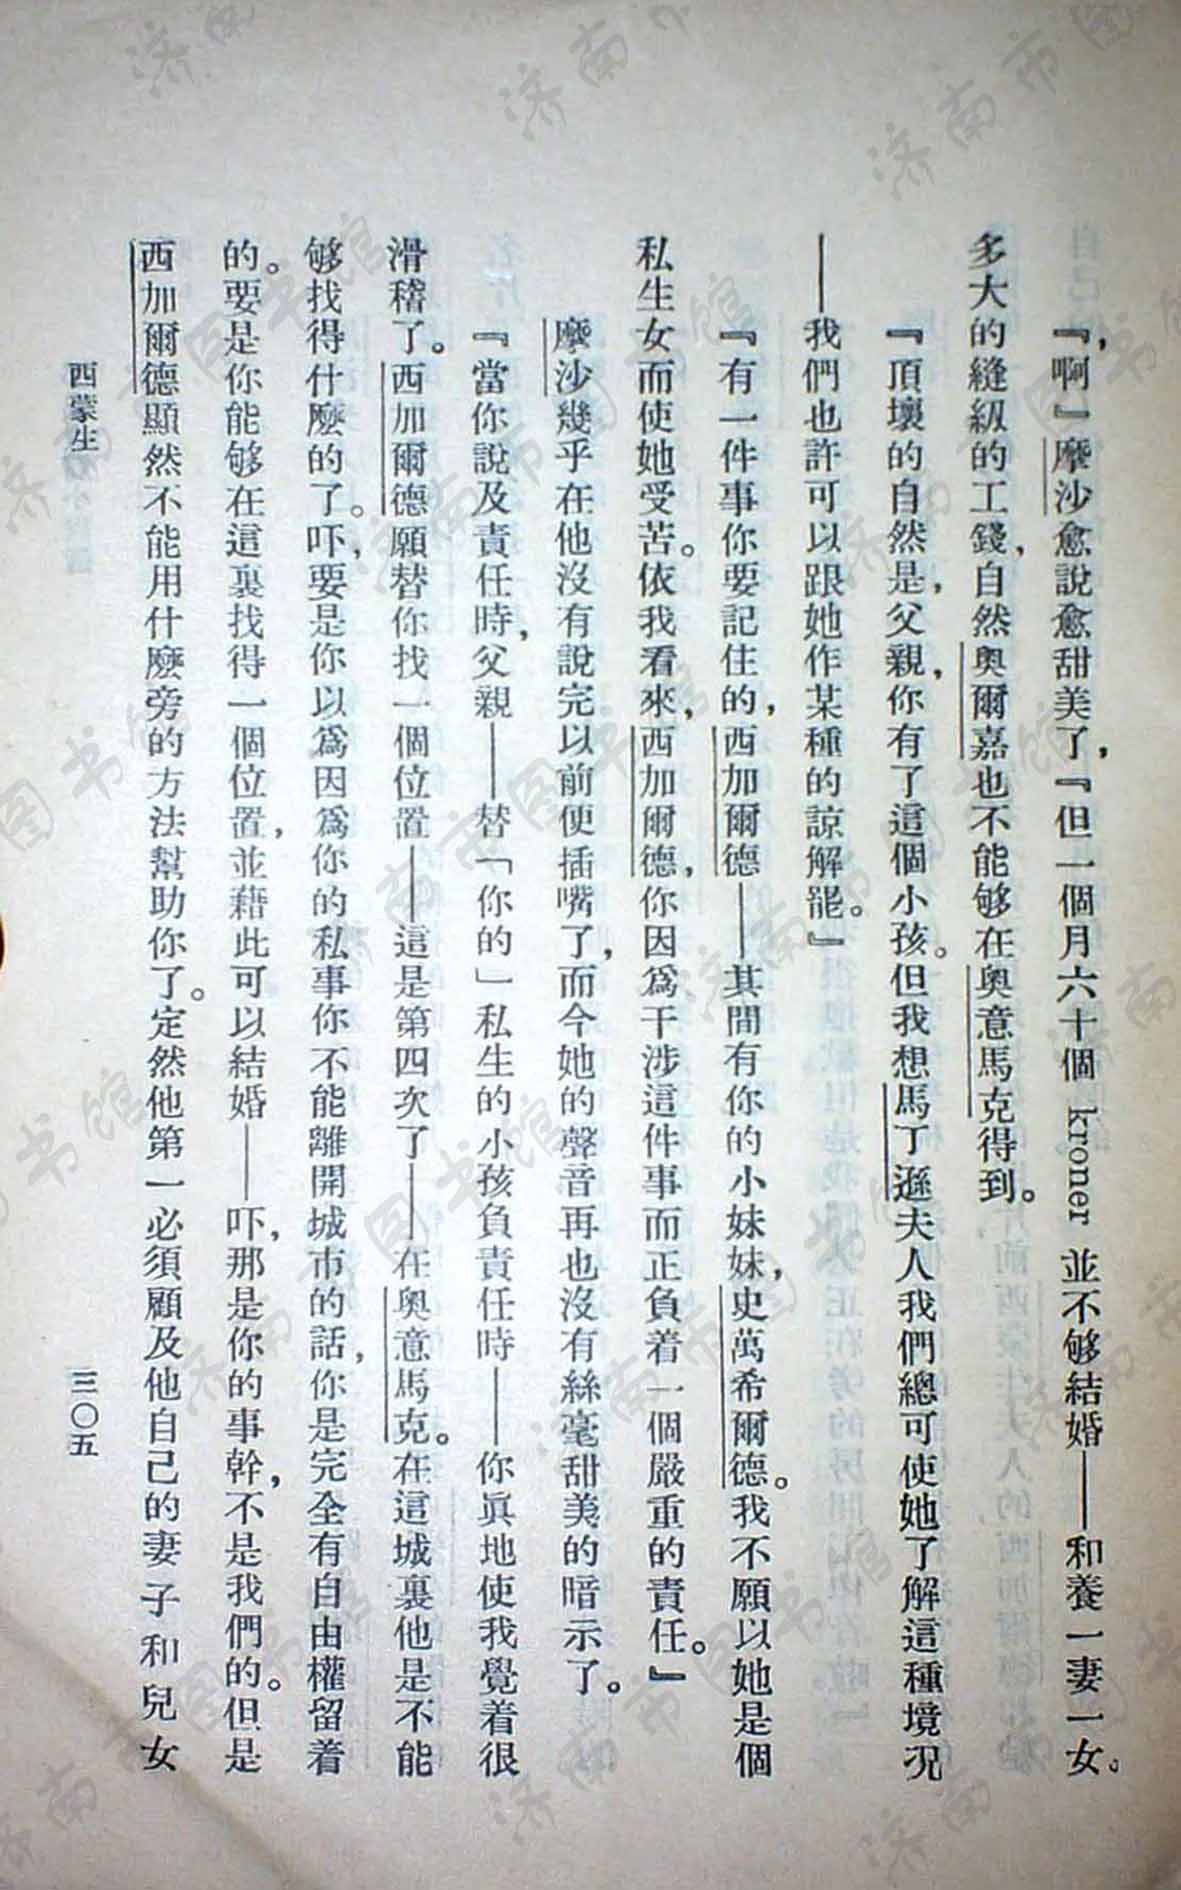 『啊,』摩沙愈說愈甜美了,『但一個月六十個 kroner 並不够結婚——和養一妻一女。
多大的縫級的工錢,自然奧爾嘉也不能够在奧意馬克得到。
『頂壞的自然是,父親,你有了這個小孩。但我想馬丁遜夫人我們總可使她了解這種境况
——我們也許可以跟她作某種的諒解罷。』
『有一件事你要記住的,西加爾德——其間有你的小妹妹,史萬希爾德。我不願以她是個
私生女而使她受苦。依我看來,西加爾德,你因爲干涉這件事而正負着一個嚴重的責任。』
摩沙幾乎在他沒有說完以前便插嘴了,而今她的聲音再也沒有絲毫甜美的暗示了。
『當你說及責任時,父親——替「你的」私生的小孩負責任時——你眞地使我覺着很
滑稽了。西加爾德願替你找一個位置——這是第四次了——在奧意馬克。在這城裏他是不能
够找得什麼的了。吓,要是你以爲因爲你的私事你不能離開城市的話,你是完全有自由權留着
的。要是你能够在這裏找得一個位置,並藉此可以結婚——吓,那是你的事幹,不是我們的。但是
西加爾德顯然不能用什麼旁的方法幫助你了。定然他第一必須顧及他自己的妻子和兒女
西蒙生
三〇五
济南市图书馆